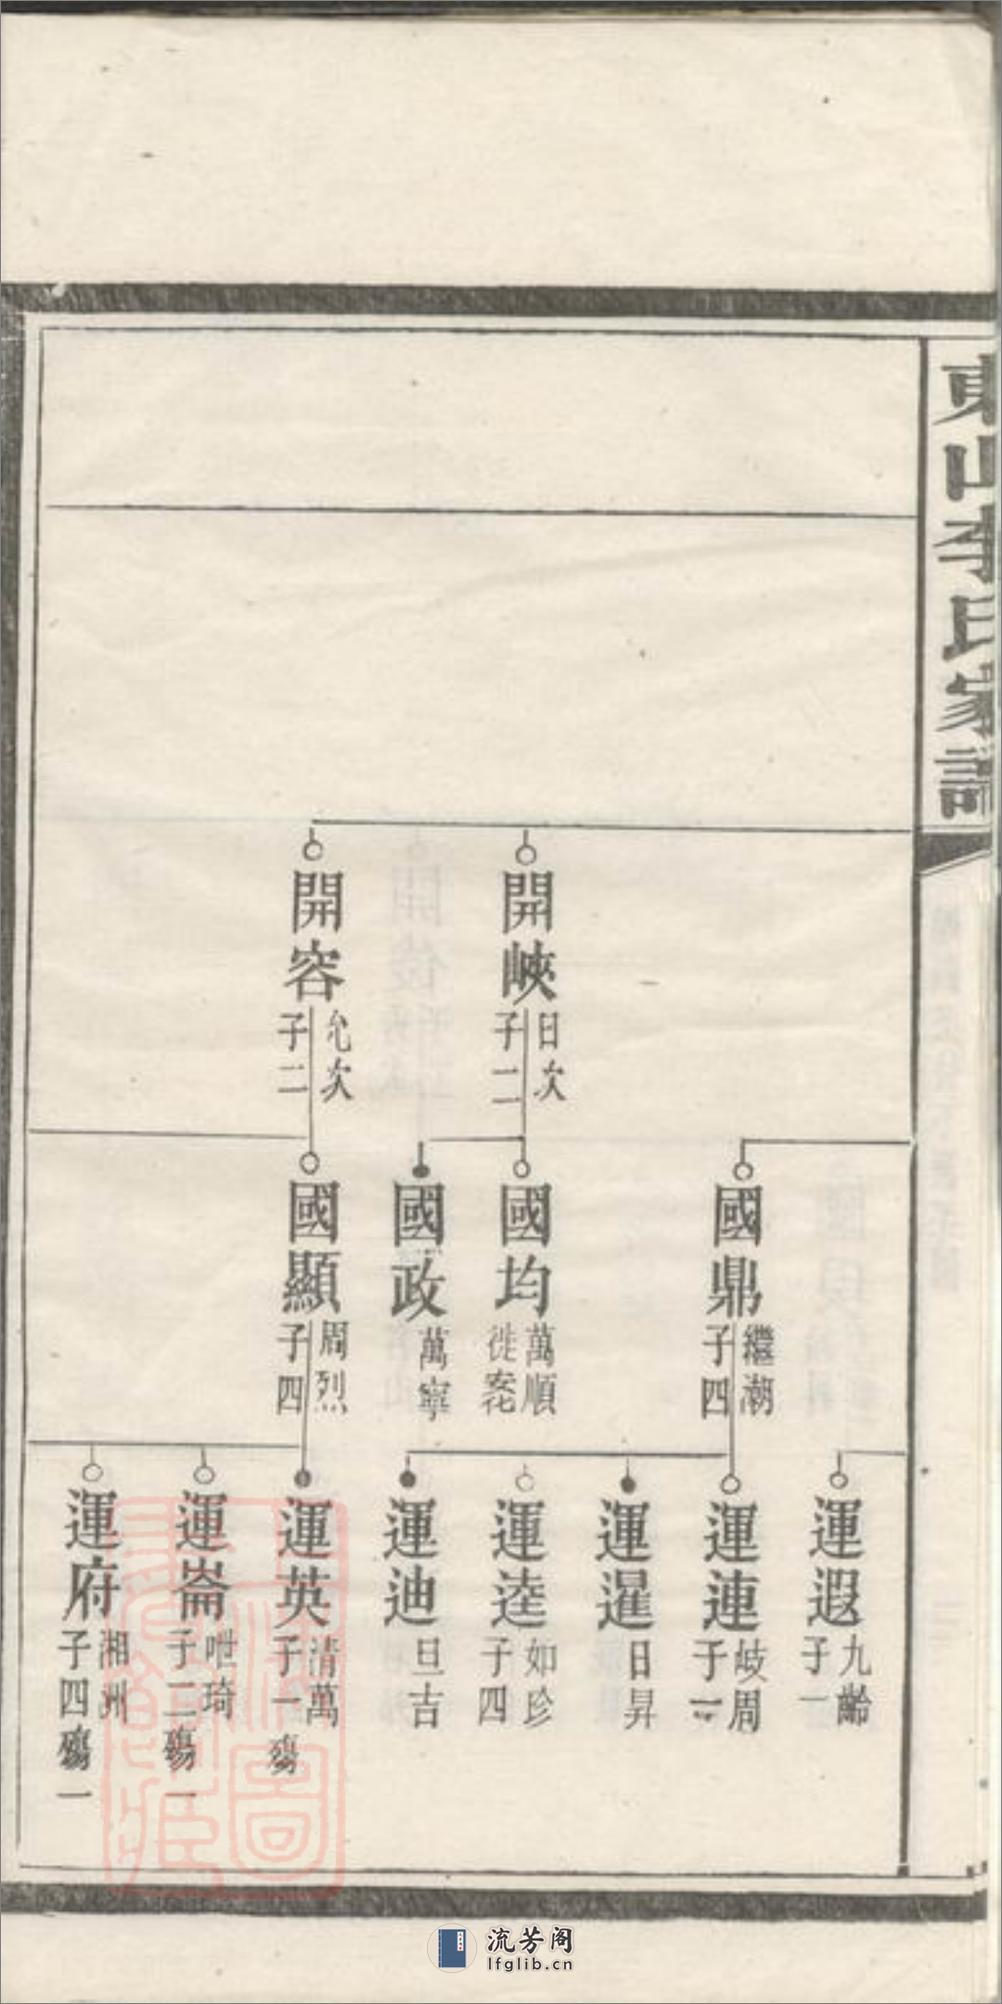 東山李氏家譜
開峽
日次
子二
開容
允次
子二
國鼎
繼潮
子四
國均
萬順
徙
國政
萬寧
國顯
周烈
子四
運遐
九齡
子一
運連
岐周
子一
運暹
日昇
運逵
如珍
子四
運迪
旦吉
運英
清萬
子一殤
運崙
呭琦
子二殤一
運府
湘洲
子四殤一
流芳阁
lfglib.cn